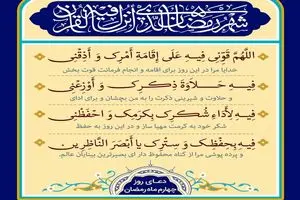 شهر رمضان الذی انزل فیه القرآن
اللَّهُمَّ قَوِّنِي فِيهِ عَلَى إِقَامَةِ أَمْرِكَ وَ أَذِقْنِي
خدایا مرا در این روز برای اقامه و انجام فرمانت قوت بخش
فِيهِ حَلَاوَةَ ذِكْرِكَ وَ أَوْزِعْنِي
و حلاوت و شیرینی ذکرت را به من بچشان و برای ادای
فِيهِ لِأَدَاءِ شُكْرِكَ بِكَرَمِكَ وَ احْفَظْنِي
شکر خود به کرمت مهیا ساز و در این روز به حفظ
فِيهِ بِحِفْظِكَ وَ سِتْرِكَ يَا أَبْصَرَ النَّاظِرِينَ
و پرده پوشی مرا از گناه محفوظ دار ای بصیرترین بینایان عالم.
دعـای روز
چهارم ماه رمضان